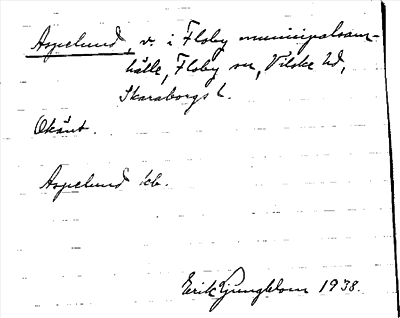 Aspelund, v. i Floby municipalsam-
hälle, Floby sn, Vilske hd,
Skaraborgs l.
Okänt.
Aspelund kb.
Erik Ljungblom 1938.